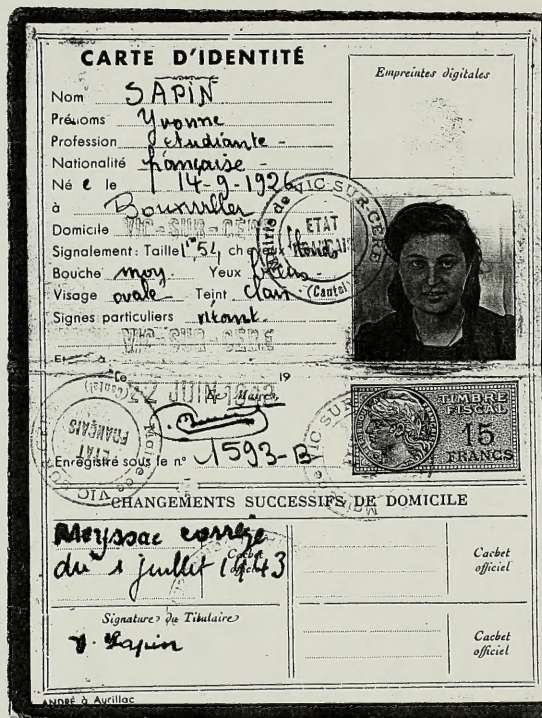 CARTE D'IDENTITÉ
Empreintes digitales
Nom SAPIN
Prénoms Yvonne
Profession étudiante -
Nationalité française -
Né e le 14-9-1926
à Bouxviller
Domicile VIC-SUR-CERE
Signalement: Taille 1m 54, cheveux blonds
Bouche moy. Yeux bleus -
Visage ovale Teint clair -
Signes particuliers néant.
VIC-SUR-CERE
Mairie de VIC SUR CERE
ETAT FRANÇAIS
(Cantal)
Et à
Le JUIN 19
Le Maire,
Mairie de VIC SUR
ETAT FRANÇAIS
(Cantal)
TIMBRE FISCAL
15 FRANCS
VIC SUR
Enregistré sous le n° 1593-B
CHANGEMENTS SUCCESSIFS DE DOMICILE
Meyssac corrèze
du 1 juillet 1943
Cachet officiel
Cachet officiel
Signature du Titulaire
Y. Sapin
Cachet officiel
ANDRÉ à Aurillac